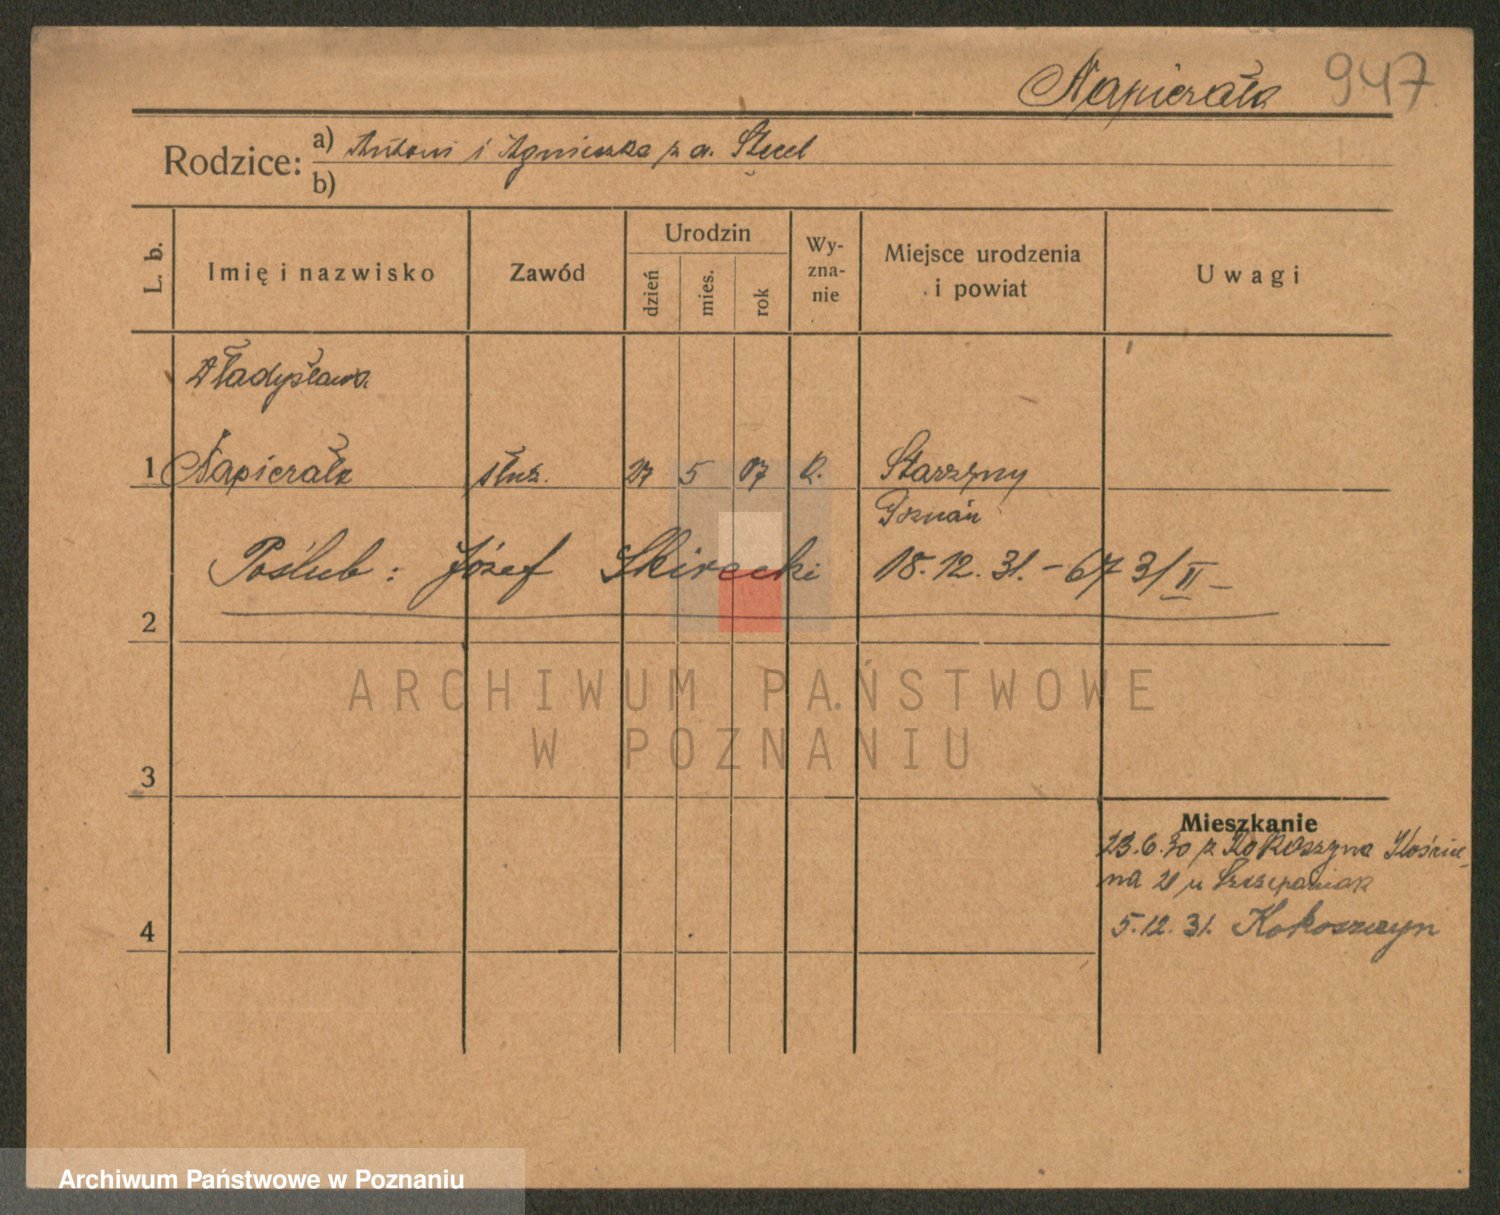 Napierała 947
Rodzice: a) Antoni i Agnieszka z d. Stecel
b)
L. b.
Imię i nazwisko
Zawód
Urodzin
dzień
mies.
rok
Wy-
zna-
nie
Miejsce urodzenia
i powiat
Uwagi
Władysława
1 Napierała służ. 27 5 07 k. Starzyny
Poznań
Poślub: Józef Skirecki 18.12.31. - 673/II -
2
ARCHIWUM PAŃSTWOWE
W POZNANIU
3
Mieszkanie
23.6.30 z Kokoszyna Kościel
na 21 u Szczepaniak
4
5.12.31. Kokoszczyn
Archiwum Państwowe w Poznaniu